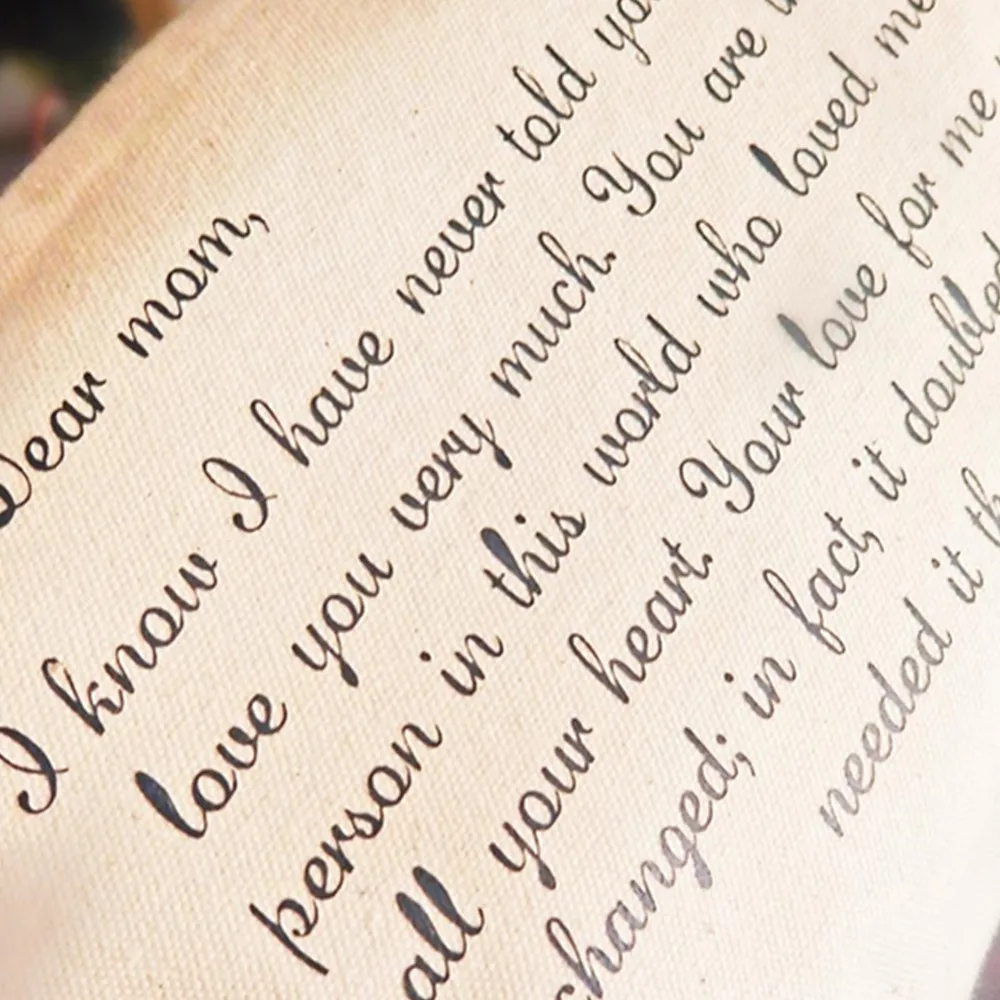 Dear mom,
I know I have never told
love you very much. You are
person in this world who loved me
all your heart. Your love for me
changed; in fact, it doubled
needed it